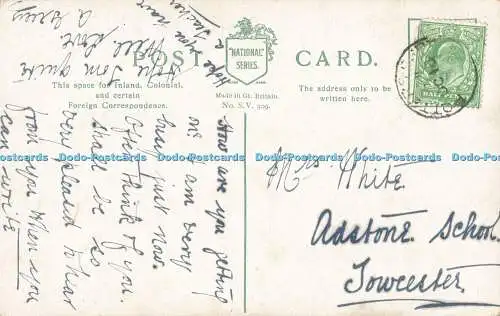 POST CARD.
"NATIONAL"
SERIES.
This space for Inland, Colonial,
and certain
Foreign Correspondence.
Made in Gt. Britain.
No. S.V. 309.
The address only to be
written here.
HALF
How are you getting
on? I am very
busy just now.
Often think of you.
Shall be so
very pleased to hear
from you when you
can write
Hope you have
a Teacher
Hope Tom quite
well. Love
Mrs White
Adstone School
Towcester
Dodo-Postcards Dodo-Postcards Dodo-Postcards Dodo-Postcards Dodo-Postcards Dodo-Postcards